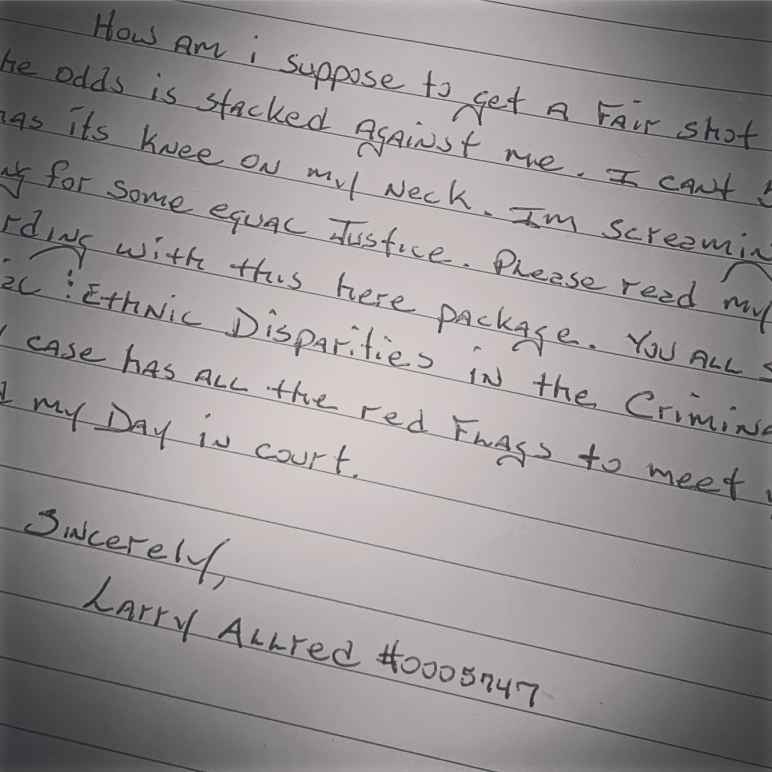 How Am i suppose to get A Fair shot
he odds is stacked Against me. I cant
its knee on my Neck. Im screamin
for some equal Justice. Please read my
rding with this here package. You ALL
: Ethnic Disparities in the Crimina
case has ALL the red Flags to meet
my Day in court.
Sincerely,
Larry Allred #0005747